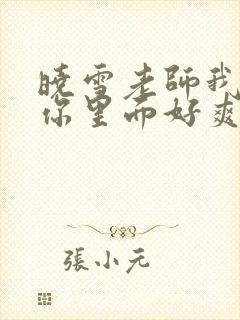 曉雪老師我
你里面好爽
張小元